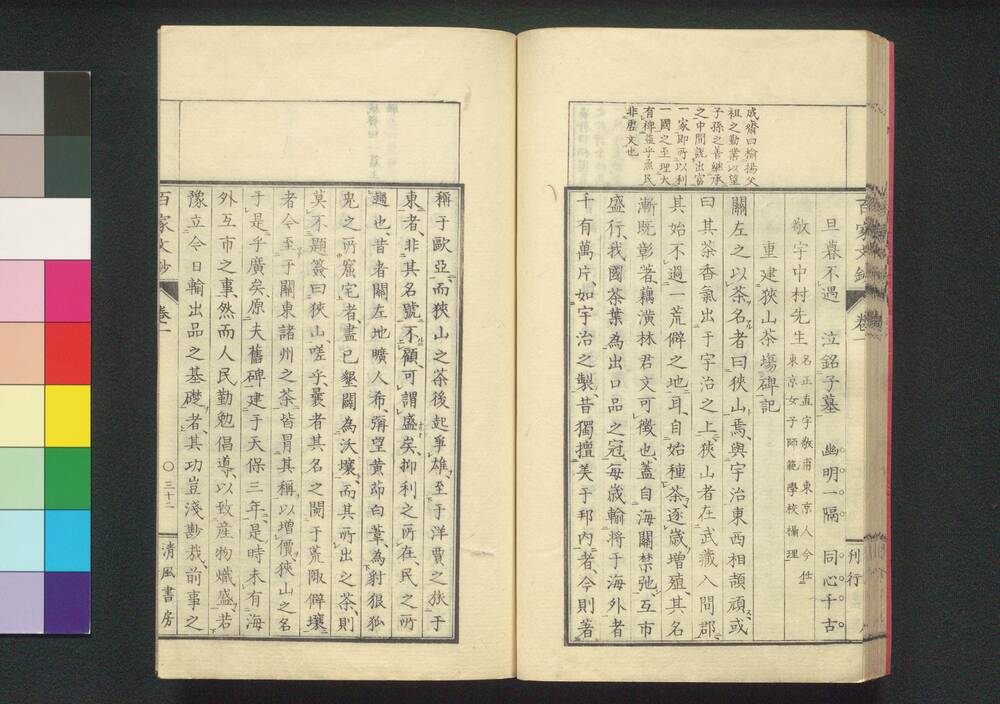 旦暮不遇　泣銘子墓　幽明一隔　同心千古
敬宇中村先生 名正直字敬甫東京人今仕
東京女子師範學校攝理
重建狹山茶場碑記
關左之以茶名者曰狹山焉與宇治東西相頡頏或
曰其茶香氣出于宇治之上狹山者在武藏入間郡
其始不過一荒僻之地耳自始種茶逐歲增殖其名
漸既彰著藕潢林君文可徵也蓋自海關禁弛互市
盛行我國茶葉為出口品之冠每歲輸將于海外者
千有萬片如宇治之製昔獨擅美于邦內者今則著
成齋曰揄揚父
祖之勤業以望
子孫之善繼承
之中間說出富
一家即所以利
一國之至理大
有裨益乎庶民
非虛文也
百家文鈔
卷一
刊行
稱于歐亞而狹山之茶後起爭雄至于洋賈之族于
東者非其名號不顧可謂盛矣抑利之所在民之所
趨也昔者關左地曠人希彌望黃茆白葦為豺狼狐
兔之所窟宅者盡已墾闢為沃壤而其所出之茶則
莫不題簽曰狹山嗟乎曩者其名之聞于荒陬僻壤
者今至于關東諸州之茶皆冒其稱以增價狹山之名
于是乎廣矣原夫舊碑建于天保三年是時未有海
外互市之事然而人民勤勉倡導以致産物熾盛若
豫立今日輸出品之基礎者其功豈淺尠哉前事之
百家文鈔
卷一
〇三十二
清風書房